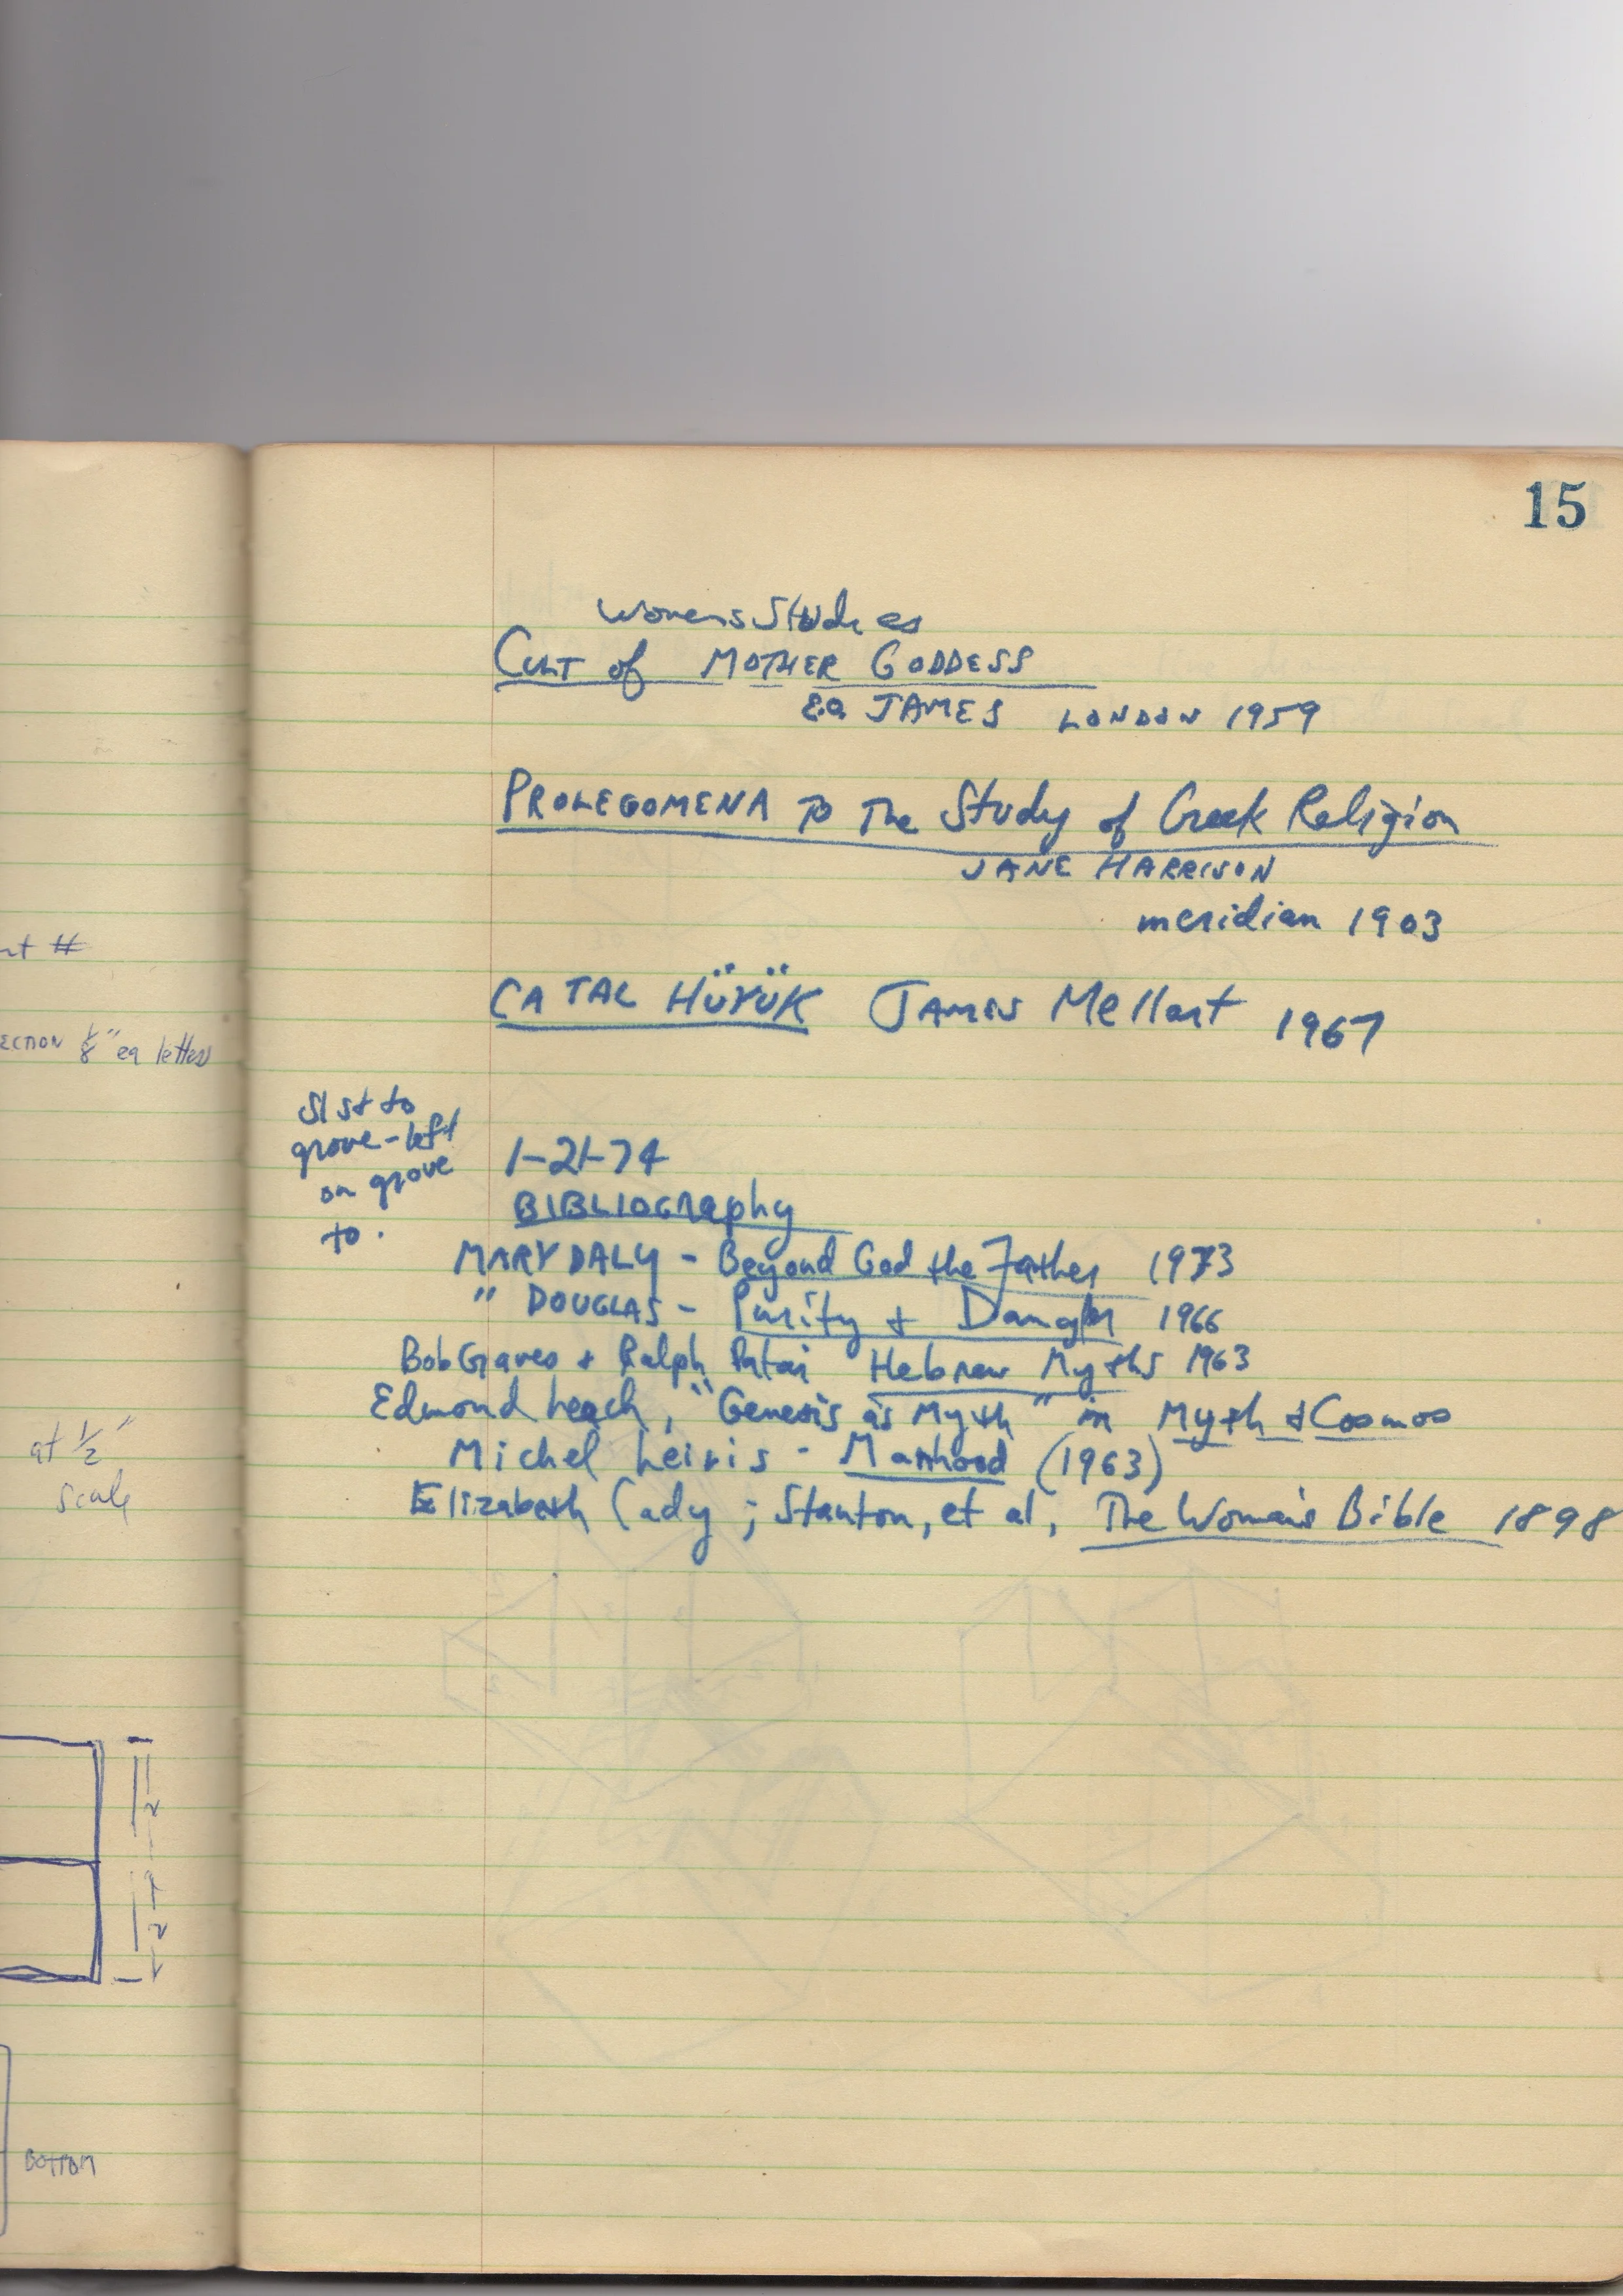 nt #
ECTION 1/8" ea letters
at 1/2"
scale
BOTTOM
15
Womens Studies
CULT of MOTHER GODDESS
E.O. JAMES LONDON 1959
PROLEGOMENA TO The Study of Greek Religion
JANE HARRISON
meridian 1903
CATAL HÜYÜK JAMES Mellart 1967
51st to
grove-left
on grove
to.
1-21-74
BIBLIOGraphy
MARY DALY - Beyond God the Father 1973
" DOUGLAS - Purity + Danger 1966
Bob Graves + Ralph Patai Hebrew Myths 1963
Edmond Leach, "Genesis as Myth" in Myth & Cosmos
Michel Leiris - Manhood (1963)
Elizabeth Cady ; Stanton, et al, The Woman's Bible 1898